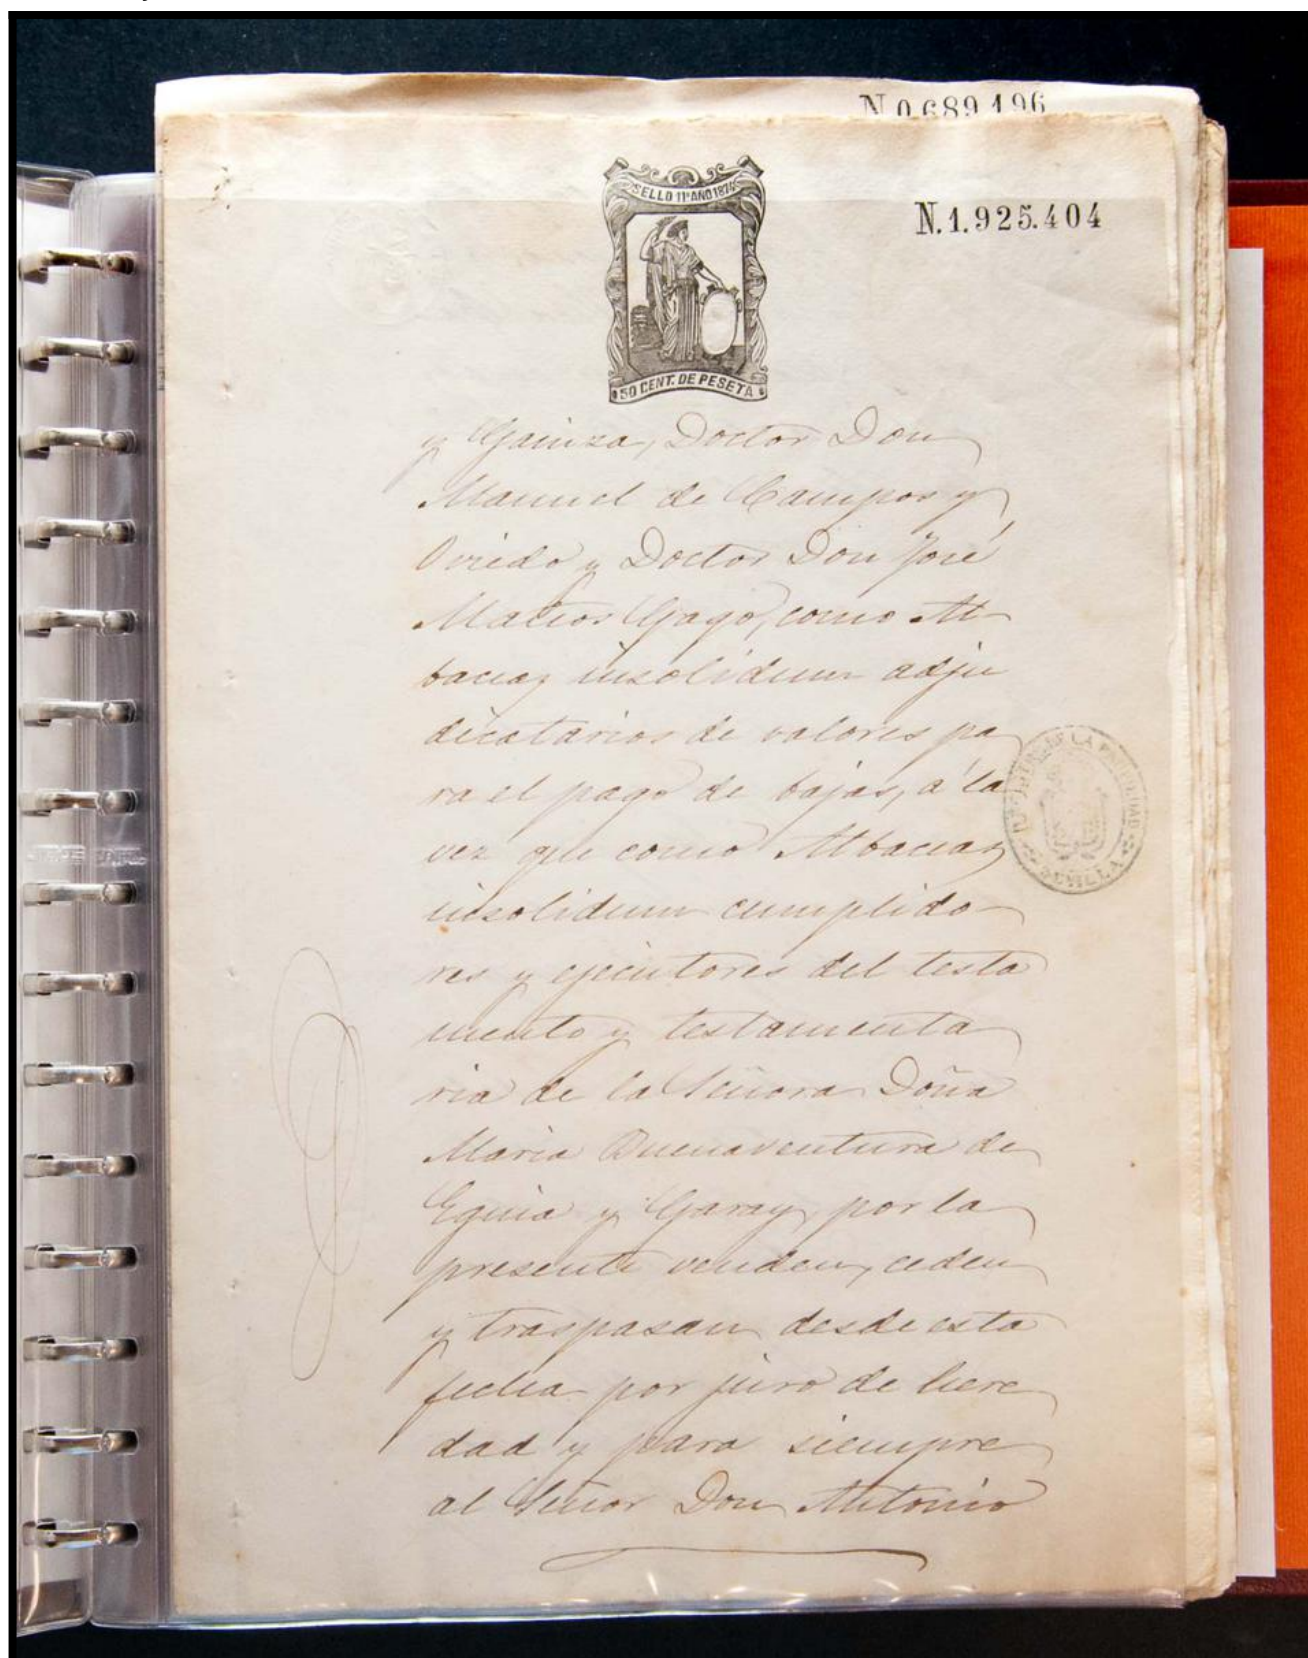 N.0.689.196
SELLO 11º AÑO 1874
N.1.925.404
50 CENT. DE PESETA
y Gainza, Doctor Don
Manuel de Campos y
Oviedo y Doctor Don José
Mateos Gago, como Al-
baceaz insolidum adju
dicatarios de valores pa
ra el pago de bajas, á la
vez que como Albaceaz
insolidum cumplido-
res y ejecutores del testa
mento y testamenta
ria de la Señora Doña
Maria Buenaventura de
Eguia y Garay, por la
presente venden, ceden
y traspasan desde esta
fecha por juro de here
dad y para siempre
al Señor Don Antonio
DE LA PROPIEDAD
SEVILLA